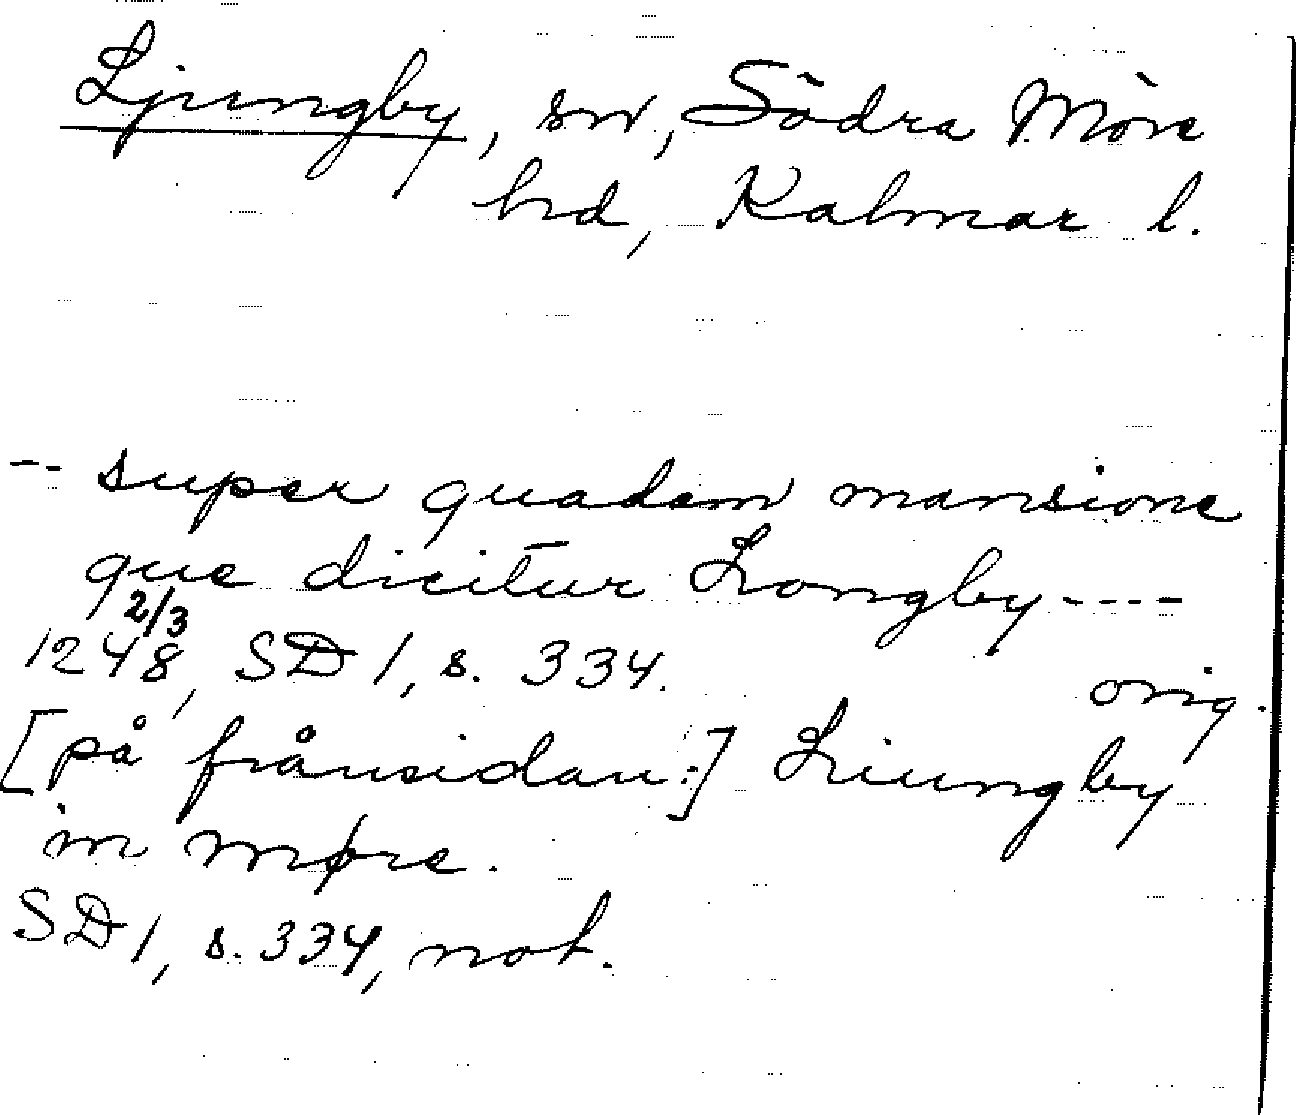 Ljungby, sn, Södra Möre
hd, Kalmar l.
-- super quadem mansione
que dicitur Longby----
1248 2/3, SD 1, s. 334.
orig.
[på frånsidan:] Liungby
in møre.
SD 1, s. 334, not.